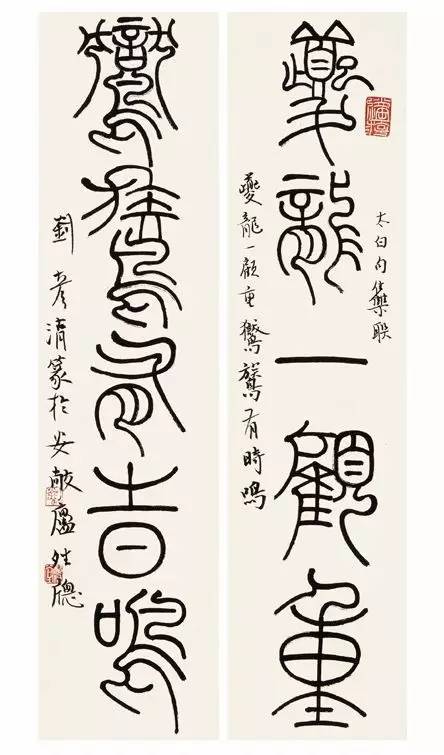 夔龍一顧重
太白句集聯
夔龍一顧重鸑鷟有時鳴
鸑鷟有旹鳴
劉彥篆於安